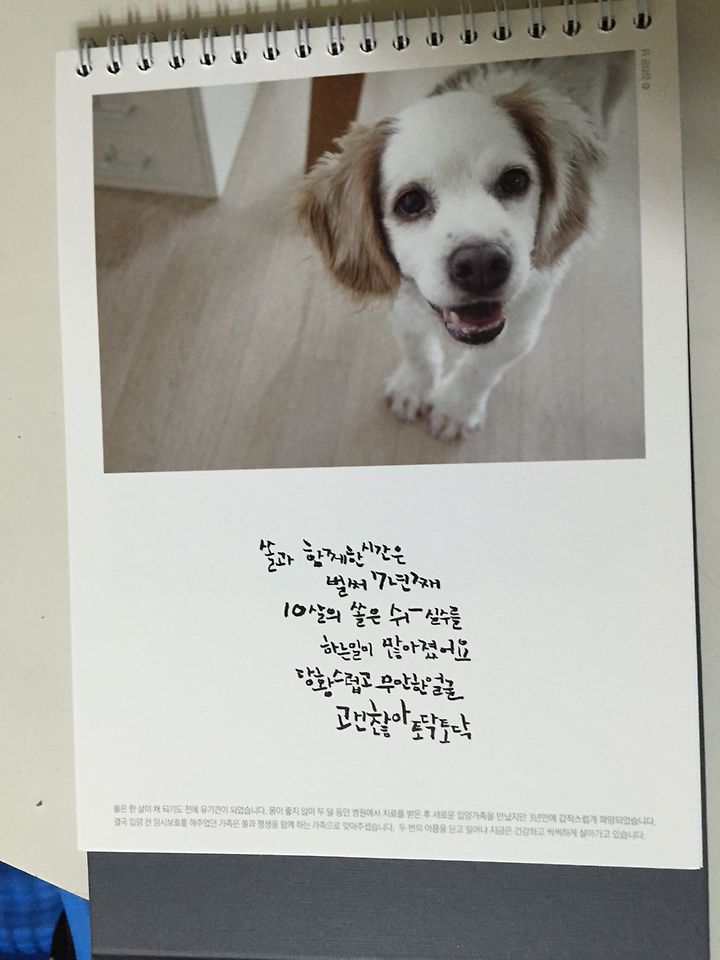 쏠과 함께한 시간은
벌써 7년째
10살의 쏠은 쉬-실수를
하는일이 많아졌어요
당황스럽고 무안한 얼굴
괜찮아 토닥토닥
쏠은 한 살이 채 되기도 전에 유기견이 되었습니다. 몸이 좋지 않아 두 달 동안 병원에서 치료를 받은 후 새로운 입양가족을 만났지만 3년만에 갑작스럽게 파양되었습니다.
결국 입양 전 임시보호를 해주었던 가족은 쏠과 평생을 함께 하는 가족으로 맞아주셨습니다. 두 번의 아픔을 딛고 일어나 지금은 건강하고 씩씩하게 살아가고 있습니다.